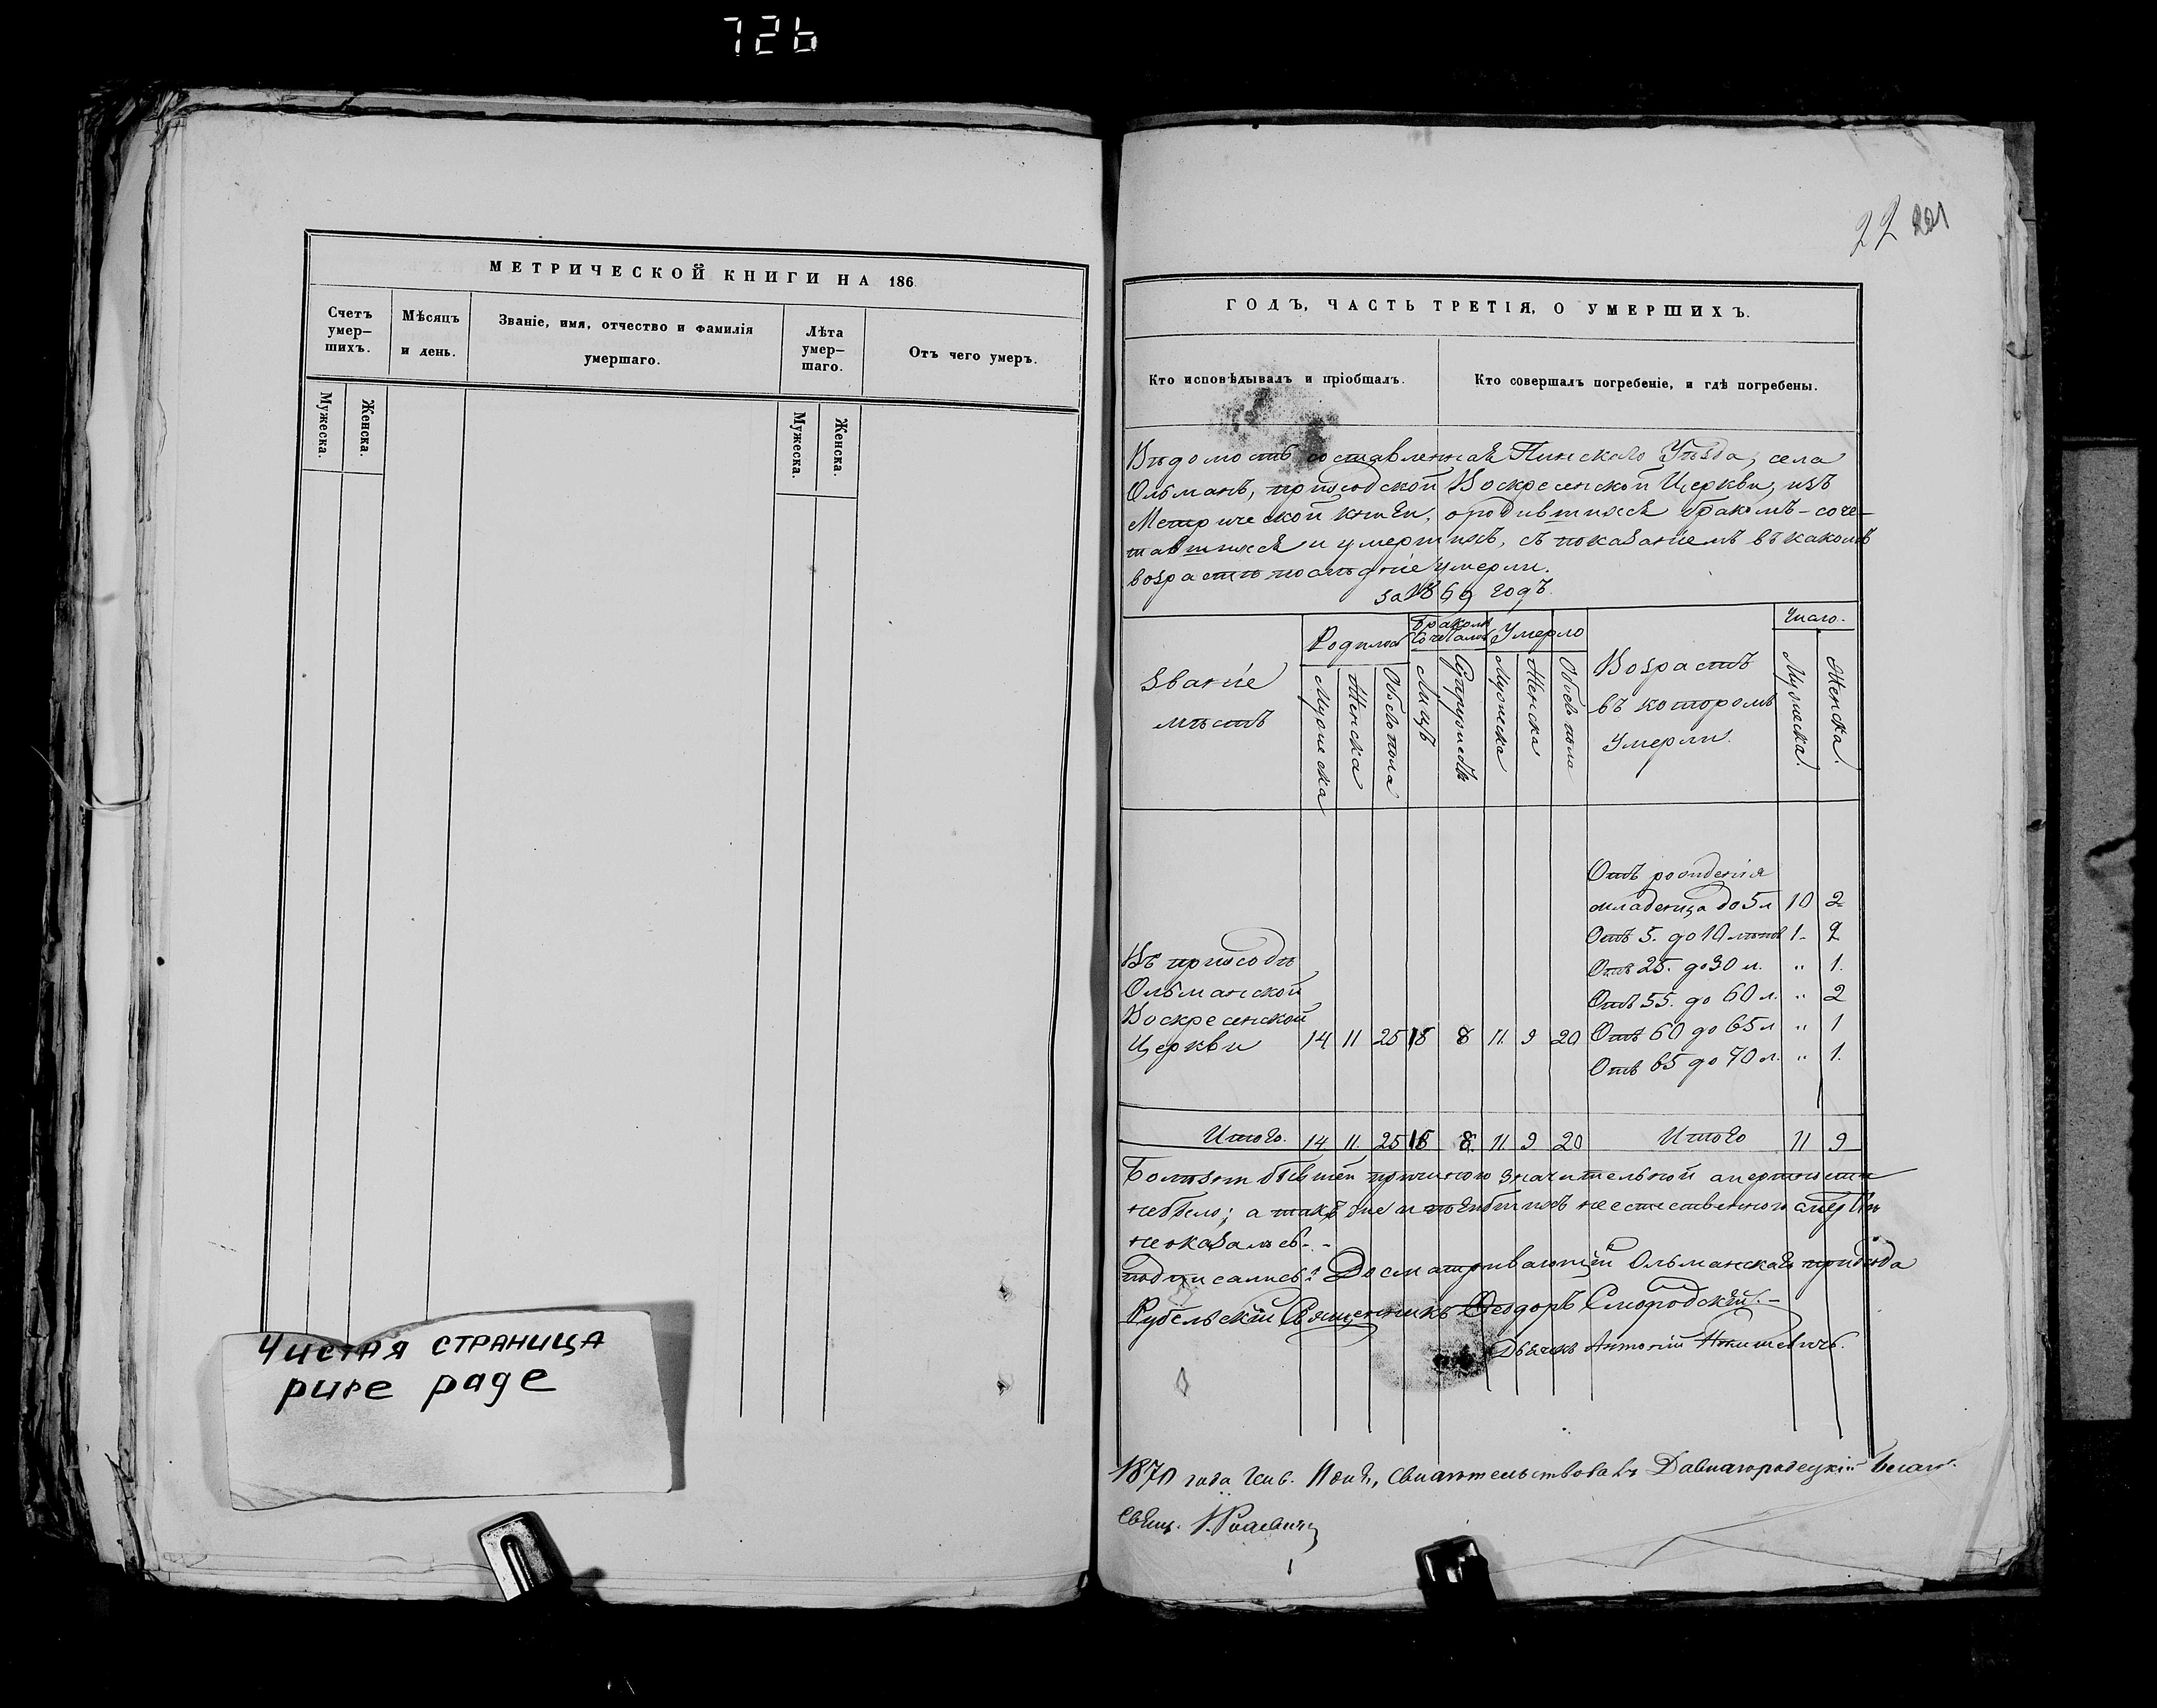 726
МЕТРИЧЕСКОЙ КНИГИ НА 186
Счетъ умер–шихъ.
Мѣсяцъ и день.
Званіе, имя, отчество и фамилія умершаго.
Лѣта умер–шаго.
Отъ чего умеръ.
Мужеска.
Женска.
Мужеска.
Женска.
Чистая страница
pure page
22 221
ГОДЪ, ЧАСТЬ ТРЕТІЯ, О УМЕРШИХЪ.
Кто исповѣдывалъ и пріобщалъ.
Кто совершалъ погребеніе, и гдѣ погребены.
Вѣдомость составленная Пинскаго Уѣзда, села
Ольманъ, приходской Воскресенской Церкви, изъ
Метрической книги, о родившихся бракомъ-соче-
тавшихся и умершихъ, съ показаніемъ въ какомъ
возрастѣ послѣдніе умерли.
за 1869 годъ.
Званіе мѣстъ
Родилось
Бракомъ Сочеталось
Умерло
Возрастъ въ которомъ Умерли.
Число.
Мужеска
Женска
Обоего пола
Лицъ
Супружествъ
Мужеска
Женска
Обоего пола
Мужеска.
Женска.
Отъ рожденія
младенца до 5 л 10 2
Отъ 5. до 10 лѣтъ 1. 2
Отъ 25. до 30 л. " 1.
Отъ 55. до 60 л. " 2
Отъ 60 до 65 л " 1
Отъ 65 до 70 л. " 1.
Въ приходѣ
Ольманской
Воскресенской
Церкви 14 11 25 8 11. 9 20
Итого. 14. 11. 25 8. 11. 9 20 Итого 11 9
Болѣзни бывшей причиною значительной смертности
небыло; а также и погибшихъ неестественного смертію
неоказалось.
подписались: Досматривающій Ольманскаго прихода
Рубельскій Священникъ Ѳеодоръ Смородскій.
Дьячекъ Антоній
1870 года Генв. дня, Свидѣтельствовалъ Давидгородецкій Благ.
Свящ.